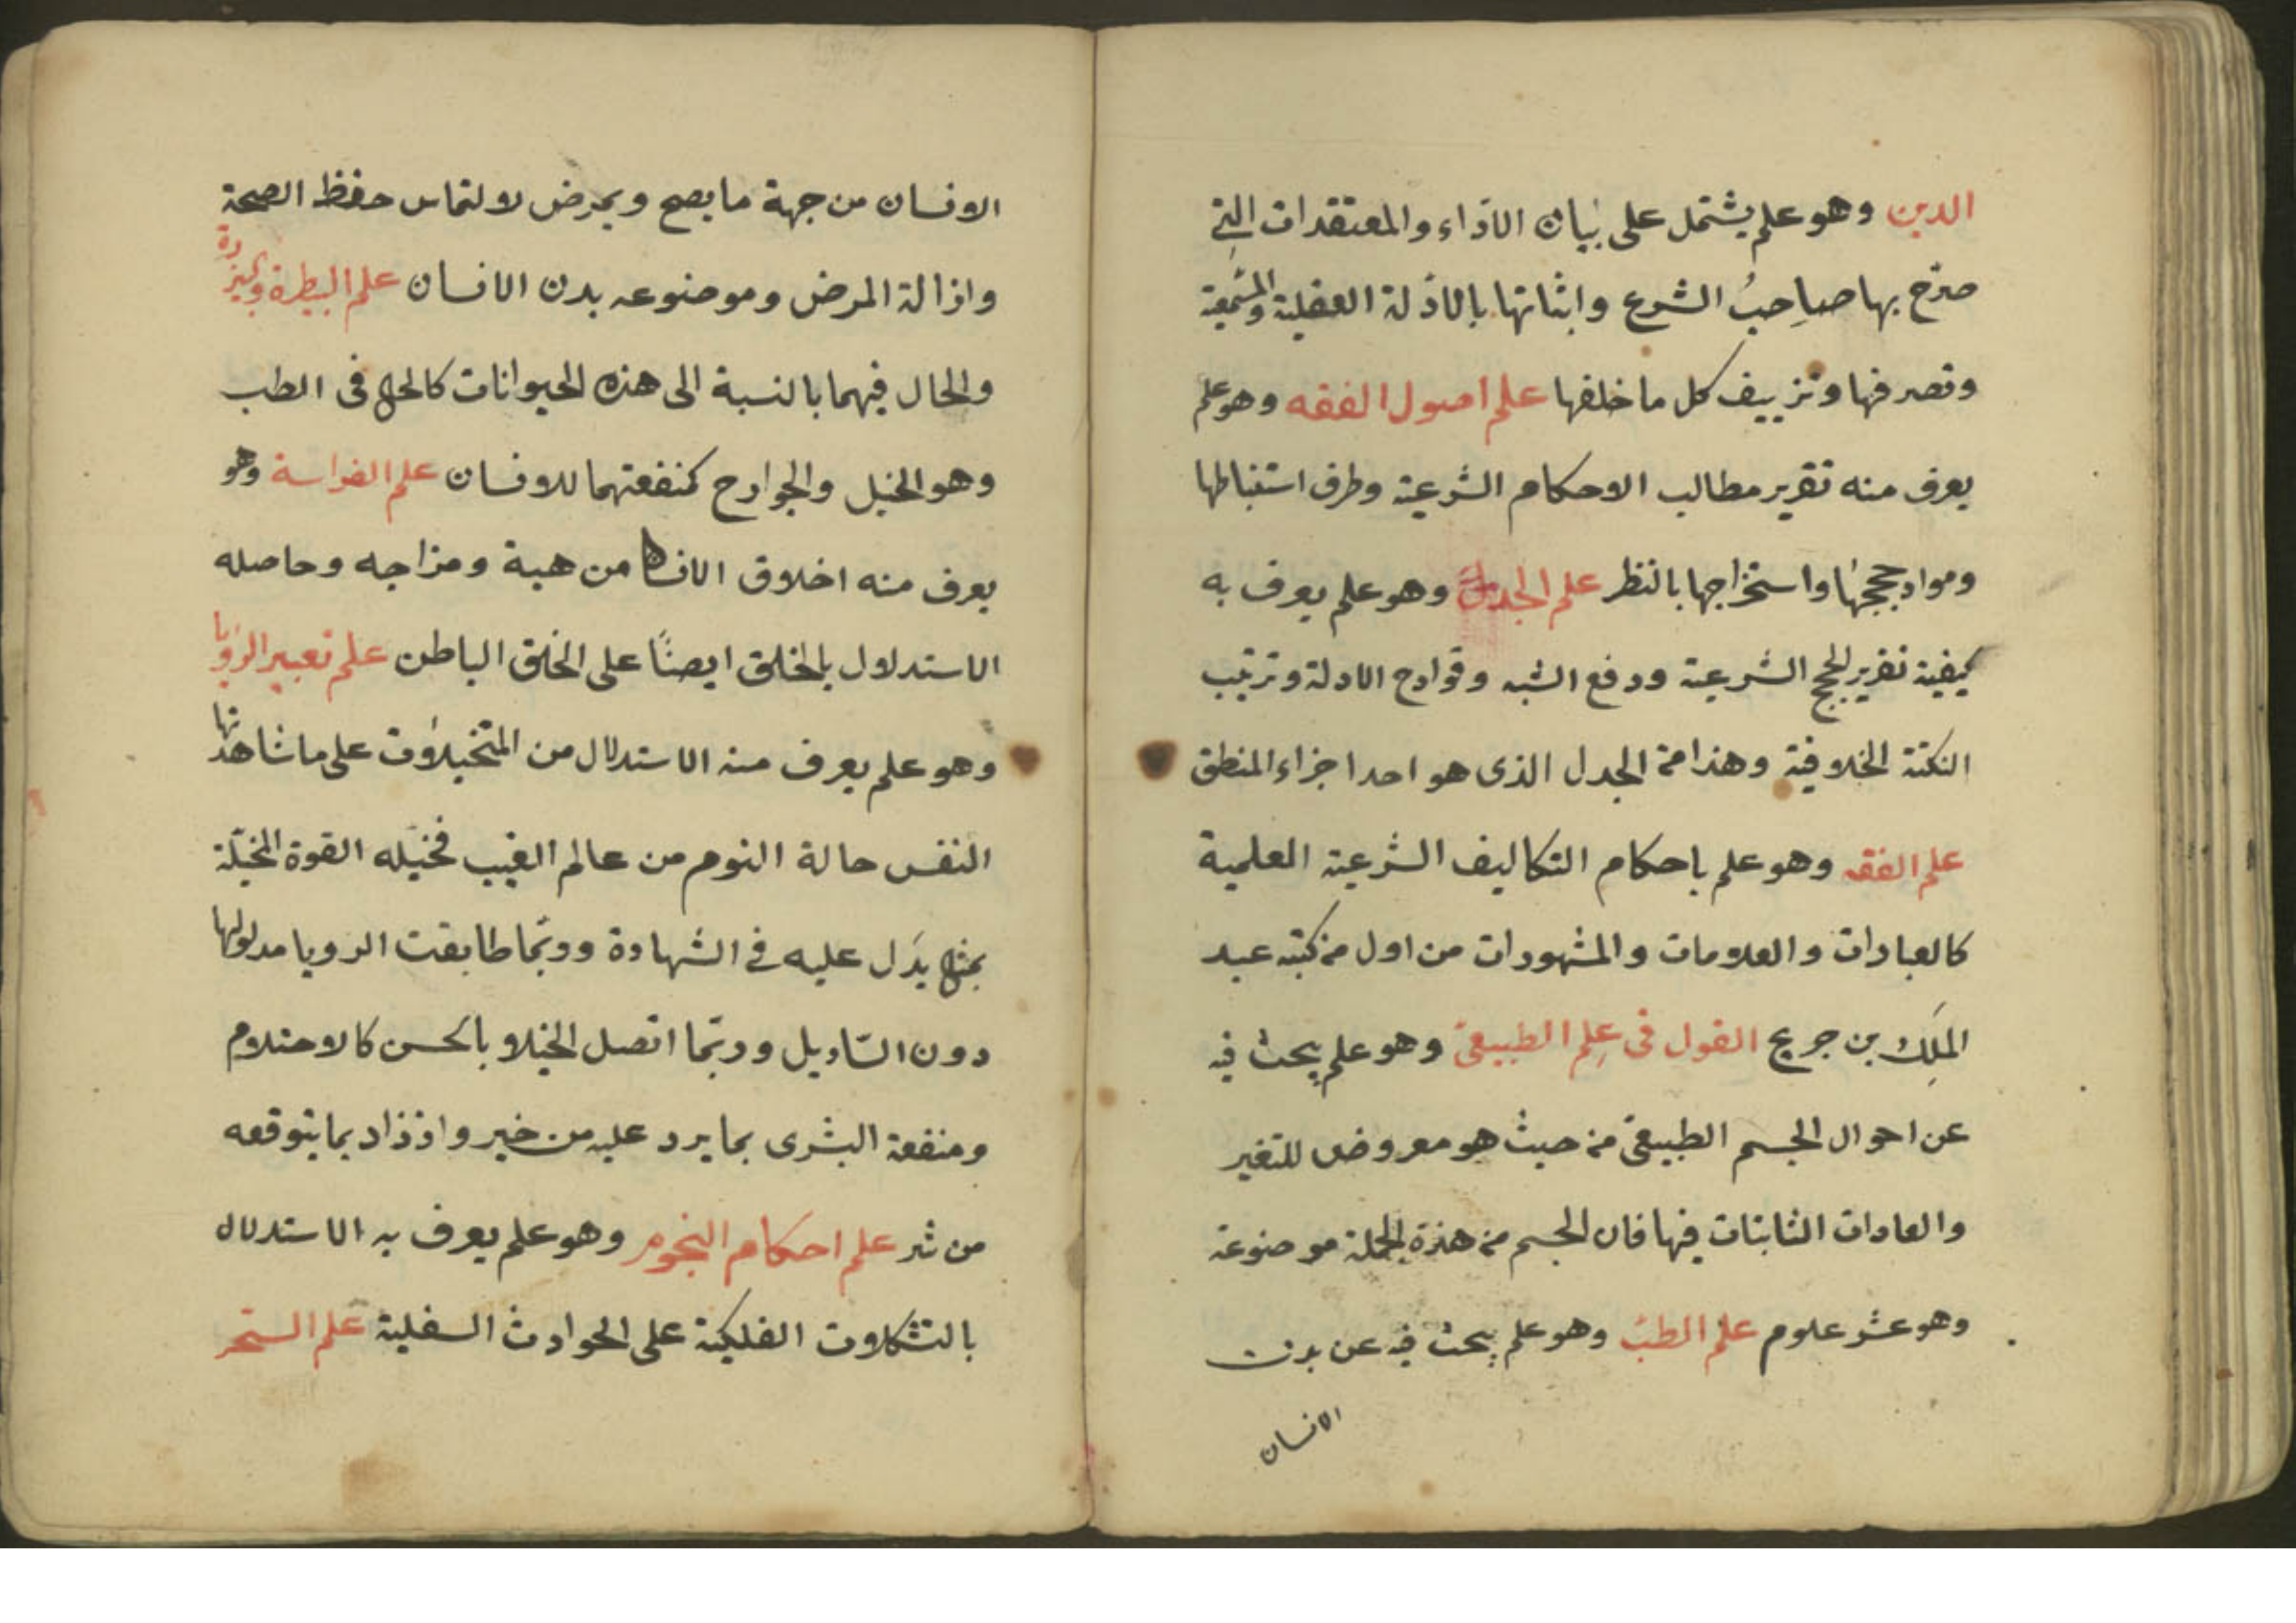 الدين وهو علم يشتمل على بيان الآراء والمعتقدات التي
صرّح بها صاحبُ الشرع واثباتها بالادّلة العقلية والسّمعية
ونصرفها وتزييف كل ما خلفها علم اصول الفقه وهو علم
يعرف منه تقرير مطالب الاحكام الشرعية وطرف استنباطها
ومواد حججها واستخراجها بالنظر علم الجدل وهو علم يعرف به
كيفية تقرير الحجج الشرعية ودفع الشبه وقوادح الادلة وترتيب
النكتة الخلافية وهذا من الجدل الذى هو احد اجزاء المنطق
علم الفقه وهو علم باحكام التكاليف الشرعية العلمية
كالعبادات والعلامات والمشهودات من اول من كتبه عبد
الملك بن جريج القول فى علم الطبيعى وهو علم يبحث فيه
عن احوال الجسم الطبيعى من حيث هو معروض للتغير
والعادات الثابتات فيها فان الجسم من هذه الجملة موضوعة
وهو عشر علوم علم الطب وهو علم يبحث فيه عن بدن
الانسان
الانسان من جهة ما يصح ويمرض لالتماس حفظ الصحة
وازالة المرض وموضوعه بدن الانسان علم البيطرة والبيزرة
والحال فيهما بالنسبة الى هذه الحيوانات كالحال فى الطب
وهو الخيل والجوارح كمنفعتهما للانسان علم الفراسة وهو
يعرف منه اخلاق الانسان من هيئة ومزاجه وحاصله
الاستدلال بالخلق ايضًا على الخلق الباطن علم تعبير الرؤيا
وهو علم يعرف منه الاستدلال من المتخيلات على ما شاهدتها
النفس حالة النوم من عالم الغيب فخيّله القوة المخيّلة
بمثال يدل عليه في الشهادة وربّما طابقت الرويا مدلولها
دون التاويل وربّما اتصل الخيال بالحسن كالاحتلام
ومنفعة البشرى بما يرد عليه من خير واذذاد بما يتوقعه
من شر علم احكام النجوم وهو علم يعرف به الاستدلال
بالتشكلات الفلكية على الحوادث السفلية علم السحر